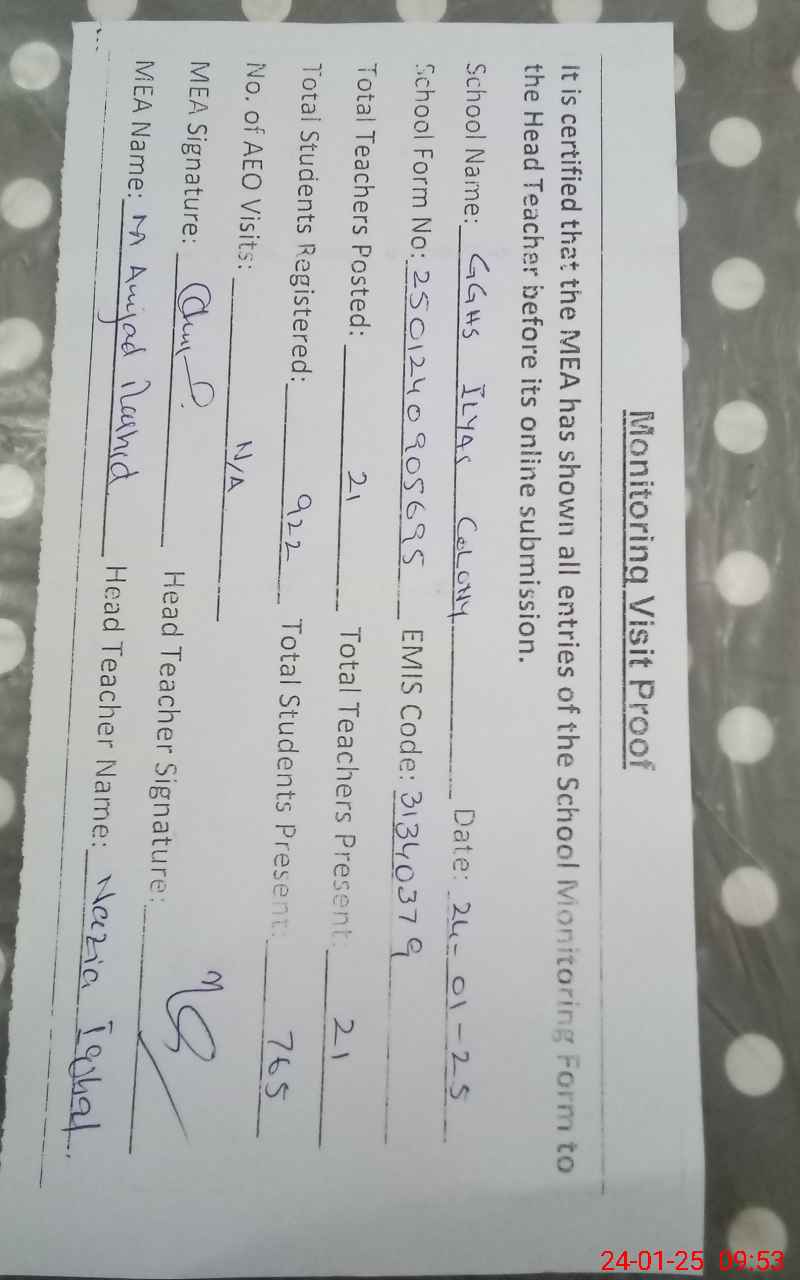 Monitoring Visit Proof
It is certified that the MEA has shown all entries of the School Monitoring Form to
the Head Teacher before its online submission.
School Name: GGHS ILYAS COLONY Date: 24-01-25
School Form No: 2501240905695 EMIS Code: 31340379
Total Teachers Posted: 21 Total Teachers Present: 21
Total Students Registered: 922 Total Students Present: 765
No. of AEO Visits: N/A
MEA Signature: Head Teacher Signature:
MEA Name: M Amjad Rashid Head Teacher Name: Nazia Iqbal.
24-01-25 09:53